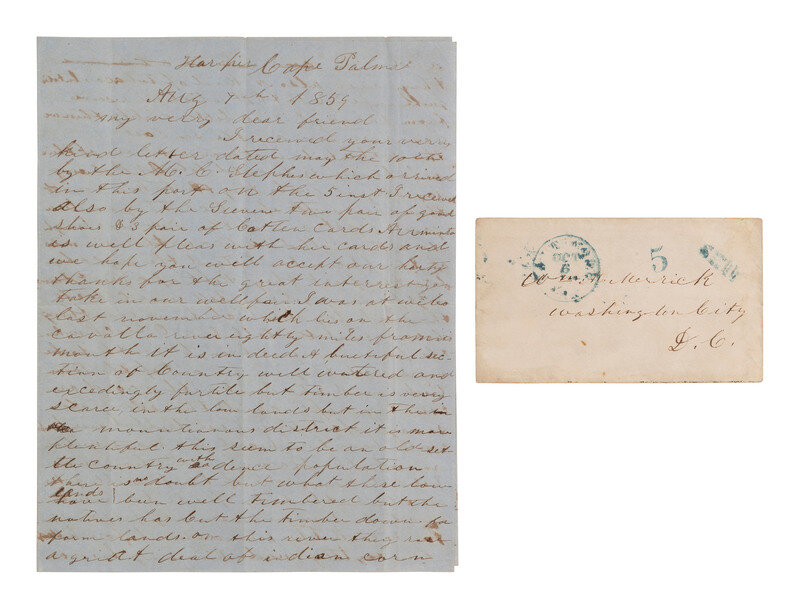 Harper Cape Palm
Aug 7th 1859
My verry dear friend
I received your verry
kind letter dated may the 10th
by the M. C. Stephes which arrived
in this port on the 5 inst I received
also by the Same two pair of good
shoes & 3 pair of Cotten Cards Arminta
is well pleas with her cards and
we hope you well accept our harty
thanks for the great interrest you
take in our wellfair I was at
last november which lies on the
cavalla river eighty miles from its
mouth it is in deed A butiful sec-
tion of Country well watered and
excedingly furtile but timber is verry
scarce in the low lands but in the
mountianous district it is more
plentiful. this seem to be an old set
tle country with dence population
thare is no doubt but what these low
lands have bin well timbered but the
natives has cut the timber down for
farm lands. on this river they
a grate deal of indian corn
OCT
6
5
Wm Merrick
Washington City
D. C.